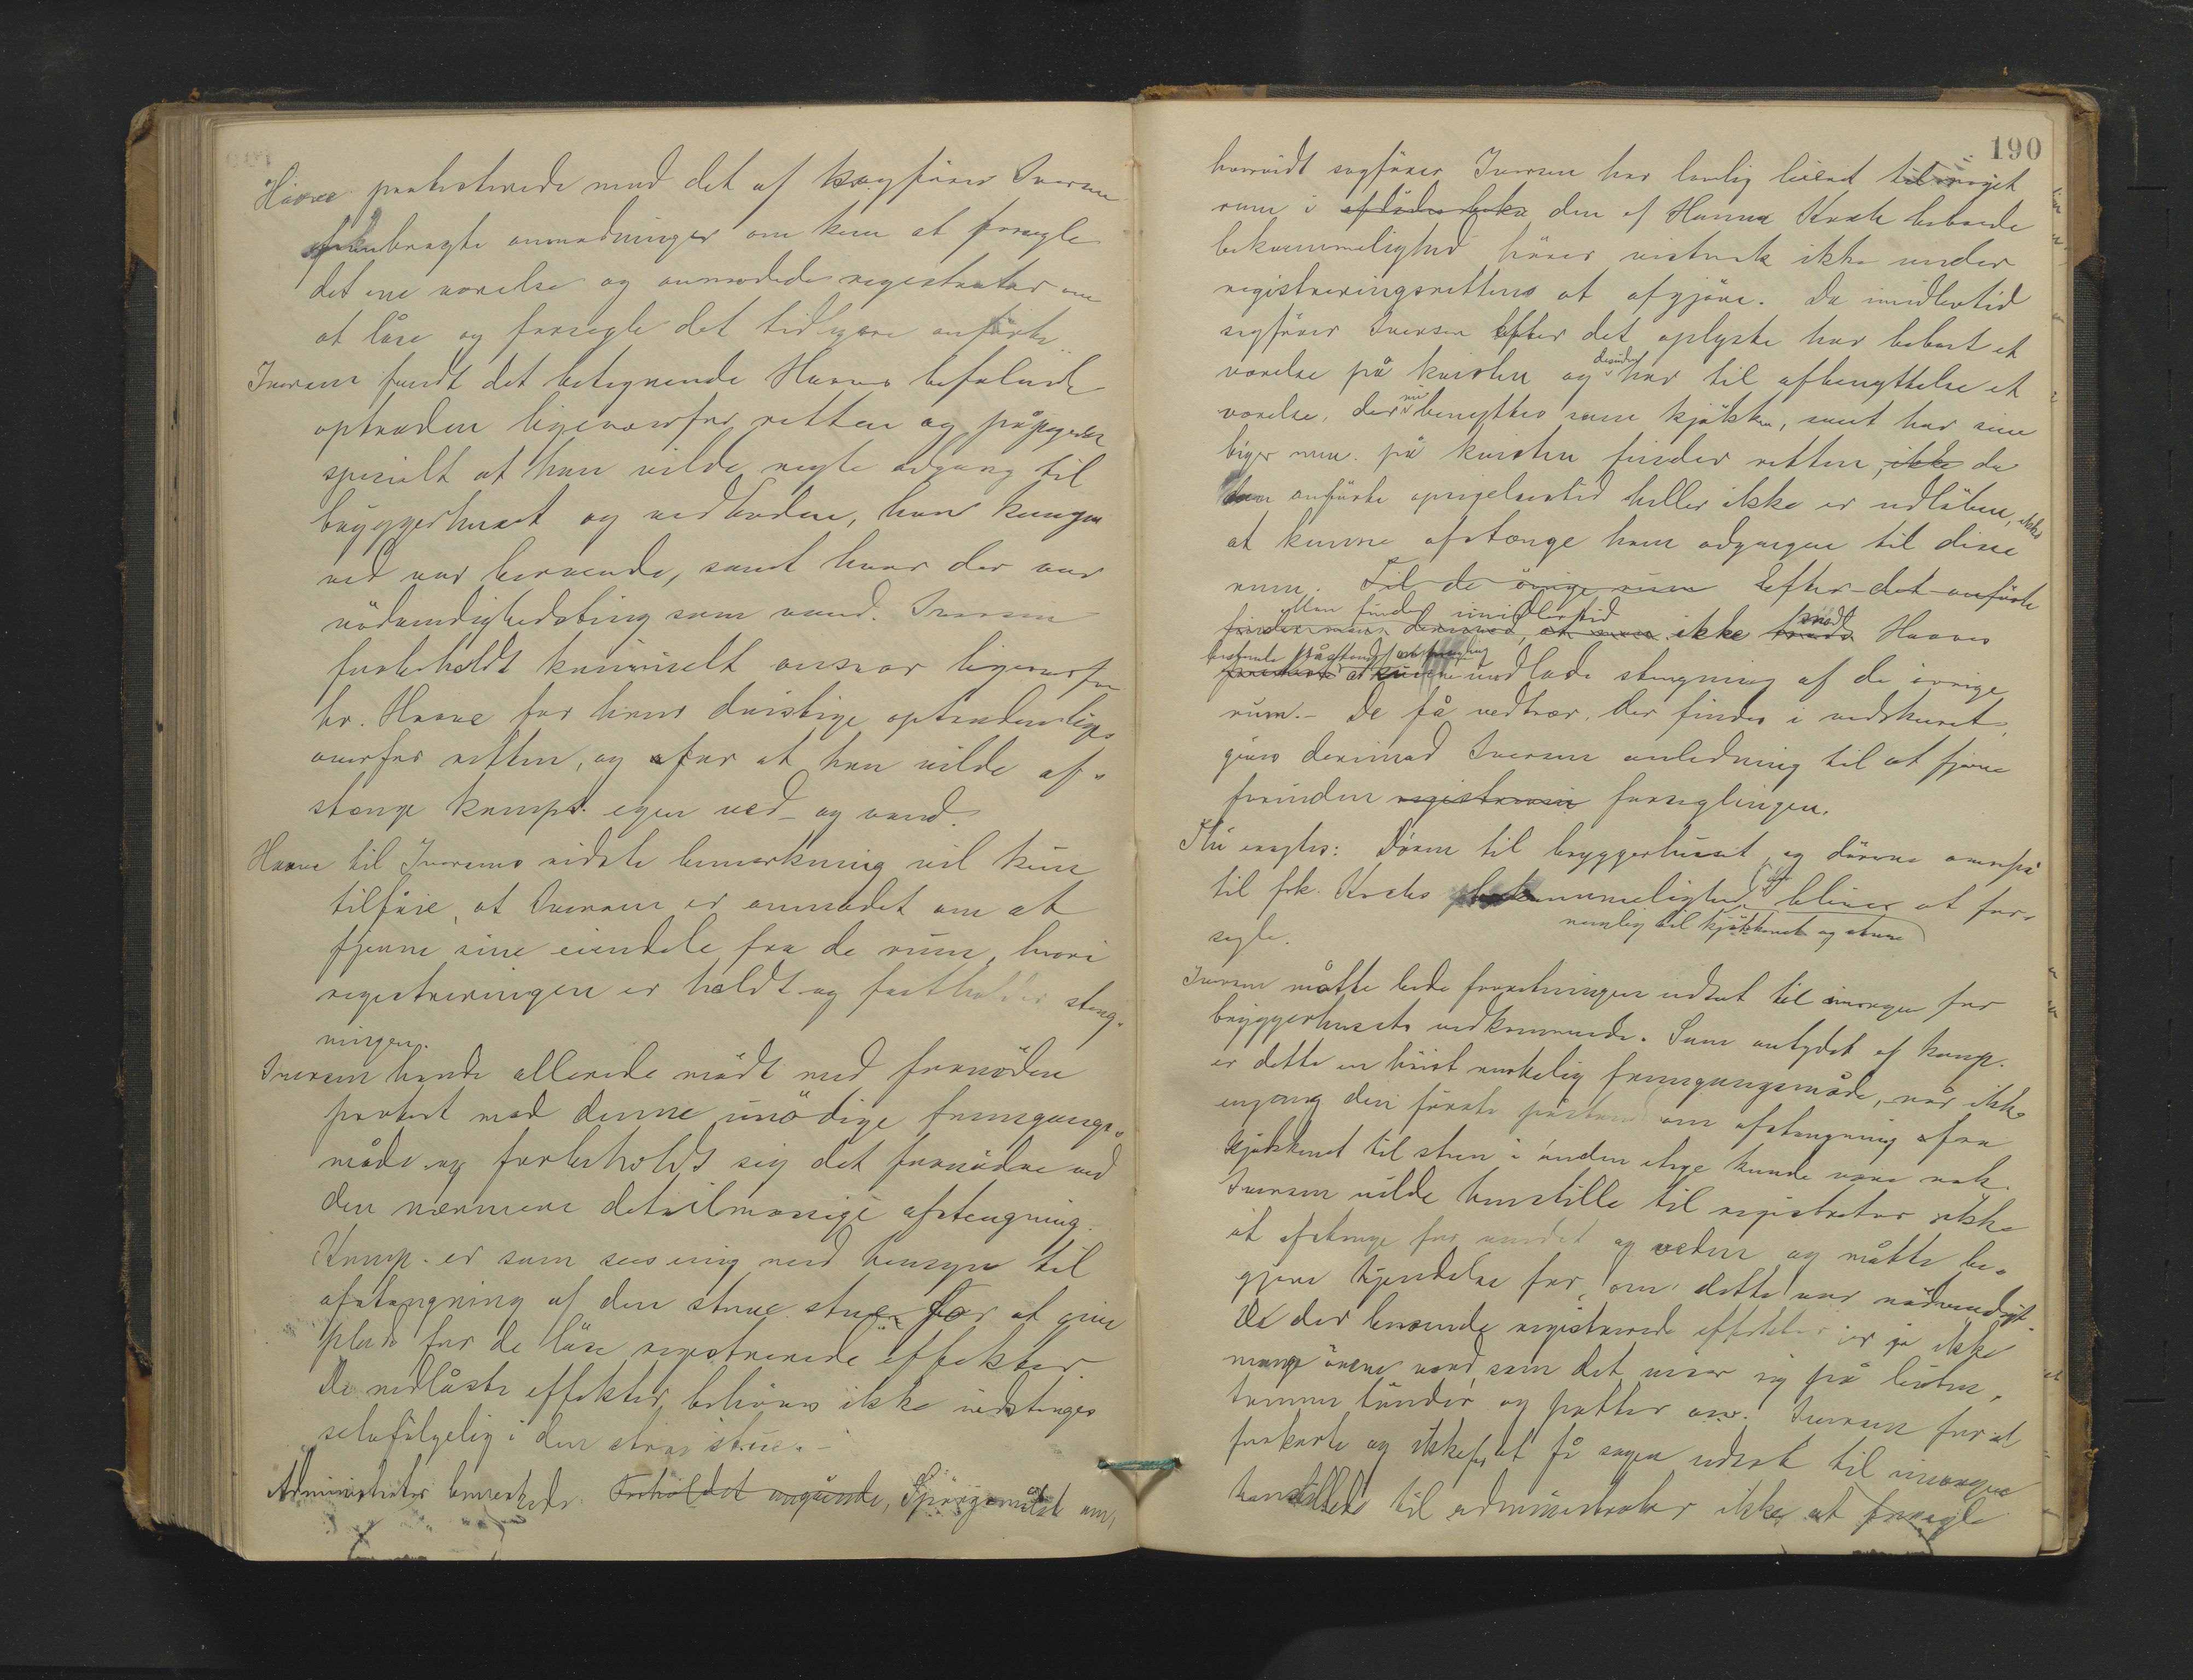 Haave protesterede mod det af sagfører Iversen
frembragte anmodninger om kun at forsegle
det ene værelse og anmodede registrator om
at låse og forsegle det tidligere anførte
Iversen fandt det betegnende Haaves befalende
optræden ligeoverfor retten og påpegede
specielt at han vilde negte adgang til
bryggerhuset og vedboden, hvor kungen
ved var beroende, samt hvor der var
nödvendighedsting som vand. Iversen
forbeholdt kriminelt ansvar ligeoverfor
hr. Haave for hans dristige optræden lige
overfor retten, og for at han vilde af-
stænge komp. egen ved- og vand.
Haave til Iversens sidste bemærkning vil kun
tilføie, at Iversen er anmodet om at
fjerne sine eiendele fra de rum, hvori
registreringen er holdt og fastholder steng-
ningen.
Iversen havde allerede mödt med fornöden
protest mod denne unödige fremgangs-
måde og forbeholdt sig det fornödne ved
den nærmere detailmæssige afstengning.
Komp. er som sees enig med hensyn til
afstængning af den store stue for at give
plads for de löse registrerede effekter.
De nedlåste effekter behöves ikke indstenges
selvfölgelig i den store stue. -
Administrator bemerkede: Forholdet angående, Spörgsmålet om,
190
hvorvidt sagförer Iversen har lovlig leiet til noget
rum i afdödes beko den af Hanna Krohs beboede
bekvemmelighed hörer vistnok ikke under
registreringsrettens at afgjöre. Da imidlertid
sagförer Iversen efter det oplyste har beboet et
værelse på kvisten og desuden har til afbenyttelse et
værelse, der nu benyttes som kjökken, samt har sine
böger m.m. på kvisten finder retten, ikke da
den anförte opsigelsestid heller ikke er udlöben, ikke
at kunne afstænge ham adgangen til disse
rum. Til de övrige rum Efter det anförte
Man finder imidlertid
finder man derimod, ikke mod Haaves
bestemte påstand
at kunne undlade stengning af de övrige
rum. - De få vedtrær, der findes i vedskuret,
gives derimod Iversen anledning til at fjerne
forinden registrerin forseglingen.
Thi eragtes: Dören til bryggerhuset og dörene ovenpå
til frk. Krohs bekvemmelighed bliver at for-
nemlig til kjökkenet og stuene
segle.
Iversen måtte bede forretningen udsat til imorgen for
bryggerhusets vedkommende. Som antydet af komp.
er dette en höist merkelig fremgangsmåde, når ikke
engang den förste påstand om afstengning fra
kjökkenet til stuen i anden etage kunde være nok.
Iversen vilde henstille til registrator ikke
at afstenge for vandet og veden og måtte be-
gjere kjendelse for, om dette var nödvendigt.
De der beroende registrerede effekter er jo ikke
mange örene værd, som det viser sig på listen,
tomme tönder og potter osv. Iversen for at
forkorte og ikke for at få sagen udsat til imorgen
henstillede til administrator ikke at forsegle